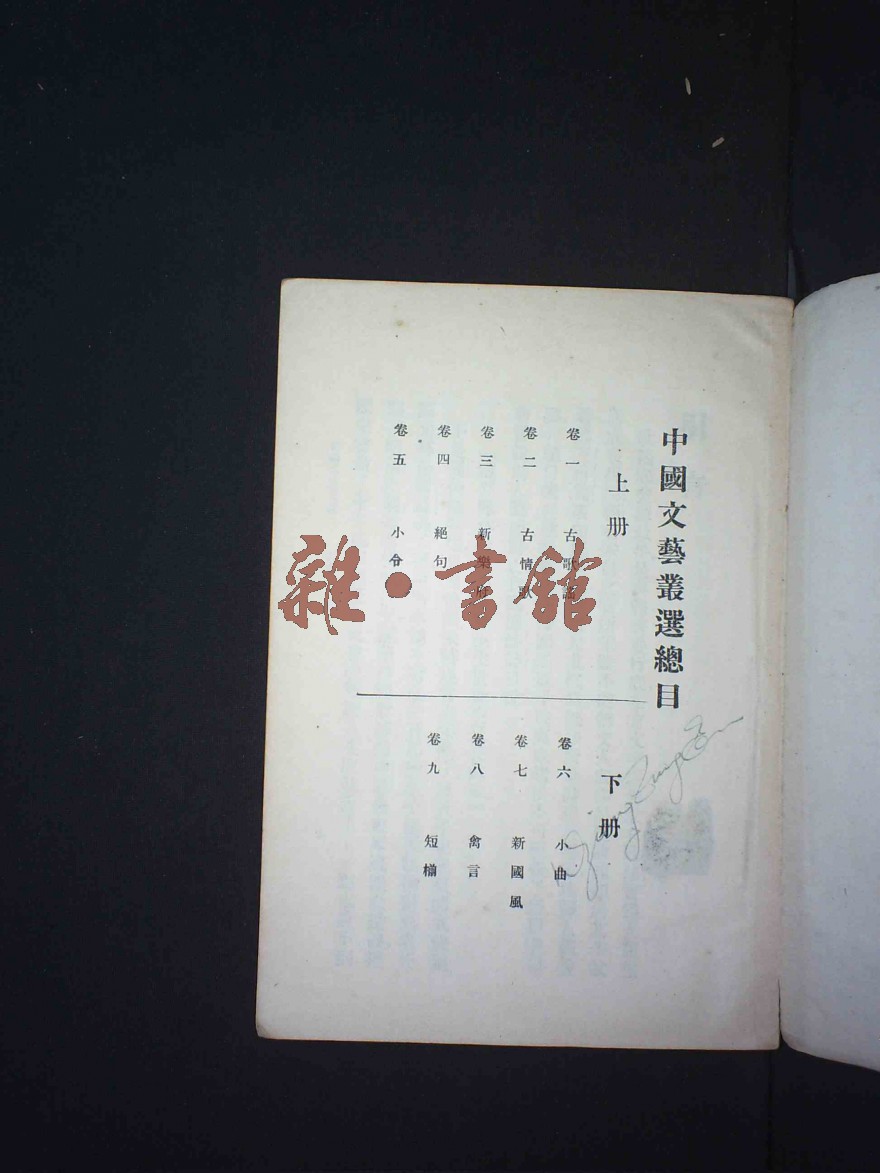 中國文藝叢選總目
上册
卷一 古歌謠
卷二 古情歌
卷三 新樂府
卷四 絕句
卷五 小令
下册
卷六 小曲
卷七 新國風
卷八 禽言
卷九 短
雜·書館